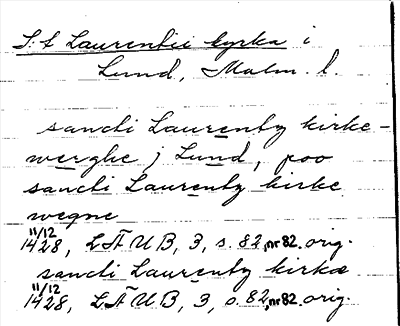 S:t Laurentii kyrka i
Lund, Malm. l.
sancti Laurenty kirke-
werghe j Lund, poo
sancti Laurenty kirke
wegne
11/12 1428, LÄUB, 3, s. 82, nr 82. orig.
sancti Laurenty kirkæ
11/12 1428, LÄUB, 3, s. 82, nr 82. orig.